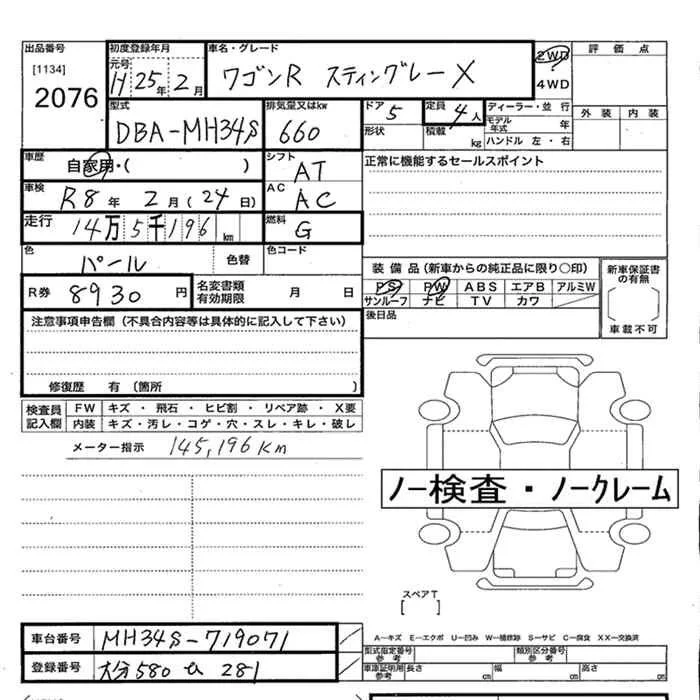 出品番号
[1134]
2076
初度登録年月
元号
H 25年 2月
車名・グレード
ワゴンR スティングレー X
2WD
4WD
評価点
外装 内装
型式
DBA-MH34S
排気量又はkw
660
ドア 5
形状
定員 4人
積載 kg
ディーラー・並行
モデル年式 年
ハンドル 左・右
車歴
自家用・( )
シフト
AT
正常に機能するセールスポイント
車検
R8年 2月(24日)
AC
AC
走行
14万5千196km
燃料
G
色
パール
色替
色コード
装備品(新車からの純正品に限り○印)
PS PW ABS エアB アルミW
サンルーフ ナビ TV カワ
新車保証書の有無
車載不可
R券 8930円
名変書類有効期限 月 日
後日品
注意事項申告欄(不具合内容等は具体的に記入して下さい)
修復歴 有(箇所 )
検査員記入欄
FW キズ・飛石・ヒビ割・リペア跡・X要
内装 キズ・汚レ・コゲ・穴・スレ・キレ・破レ
メーター指示 145,196km
ノー検査・ノークレーム
スペアT
[ ]
車台番号 MH34S-719071
登録番号 大分580 281
A-キズ E-エクボ U-凹み W-補修跡 S-サビ C-腐食 XX-交換済
型式指定番号参考
類別区分番号参考
車庫証明用参考 長さ cm 幅 cm 高さ cm